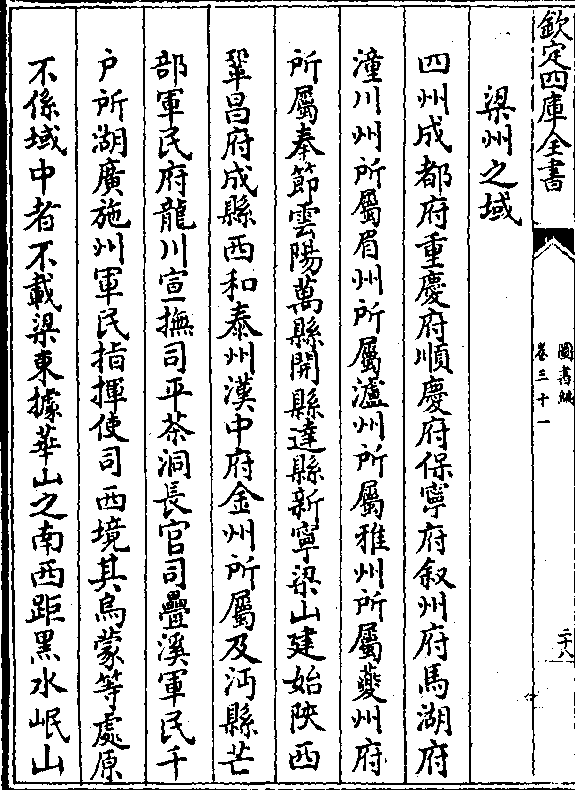 欽定四庫全書
圖書編
卷三十一
二十八
梁州之域
四州成都府重慶府順慶府保寧府叙州府馬湖府
潼川州所屬眉州所屬瀘州所屬雅州所屬夔州府
所屬奉節雲陽萬縣開縣達縣新寧梁山建始陜西
鞏昌府成縣西和泰州漢中府金州所屬及沔縣芒
部軍民府龍川宣撫司平茶洞長官司疊溪軍民千
户所湖廣施州軍民指揮使司西境其烏蒙等處原
不係域中者不載梁東據華山之南西距黑水岷山